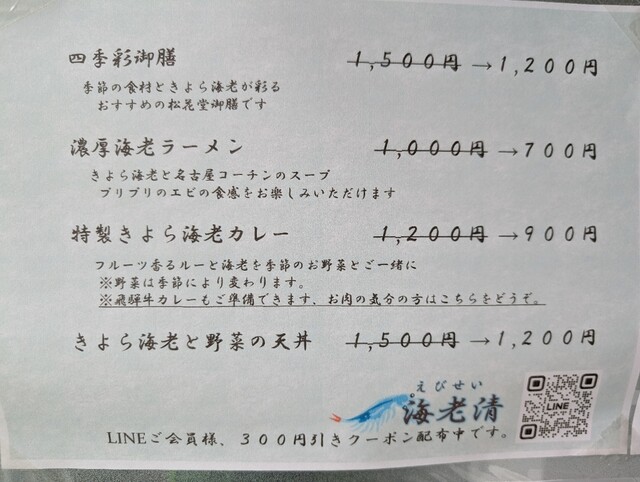 四季彩御膳 1,500円→1,200円
季節の食材ときよら海老が彩る
おすすめの松花堂御膳です
濃厚海老ラーメン 1,000円→700円
きよら海老と名古屋コーチンのスープ
プリプリのエビの食感をお楽しみいただけます
特製きよら海老カレー 1,200円→900円
フルーツ香るルーと海老を季節のお野菜とご一緒に
※野菜は季節により変わります。
※飛騨牛カレーもご準備できます、お肉の気分の方はこちらをどうぞ。
きよら海老と野菜の天丼 1,500円→1,200円
えびせい
海老清
LINE
LINEご会員様、300円引きクーポン配布中です。